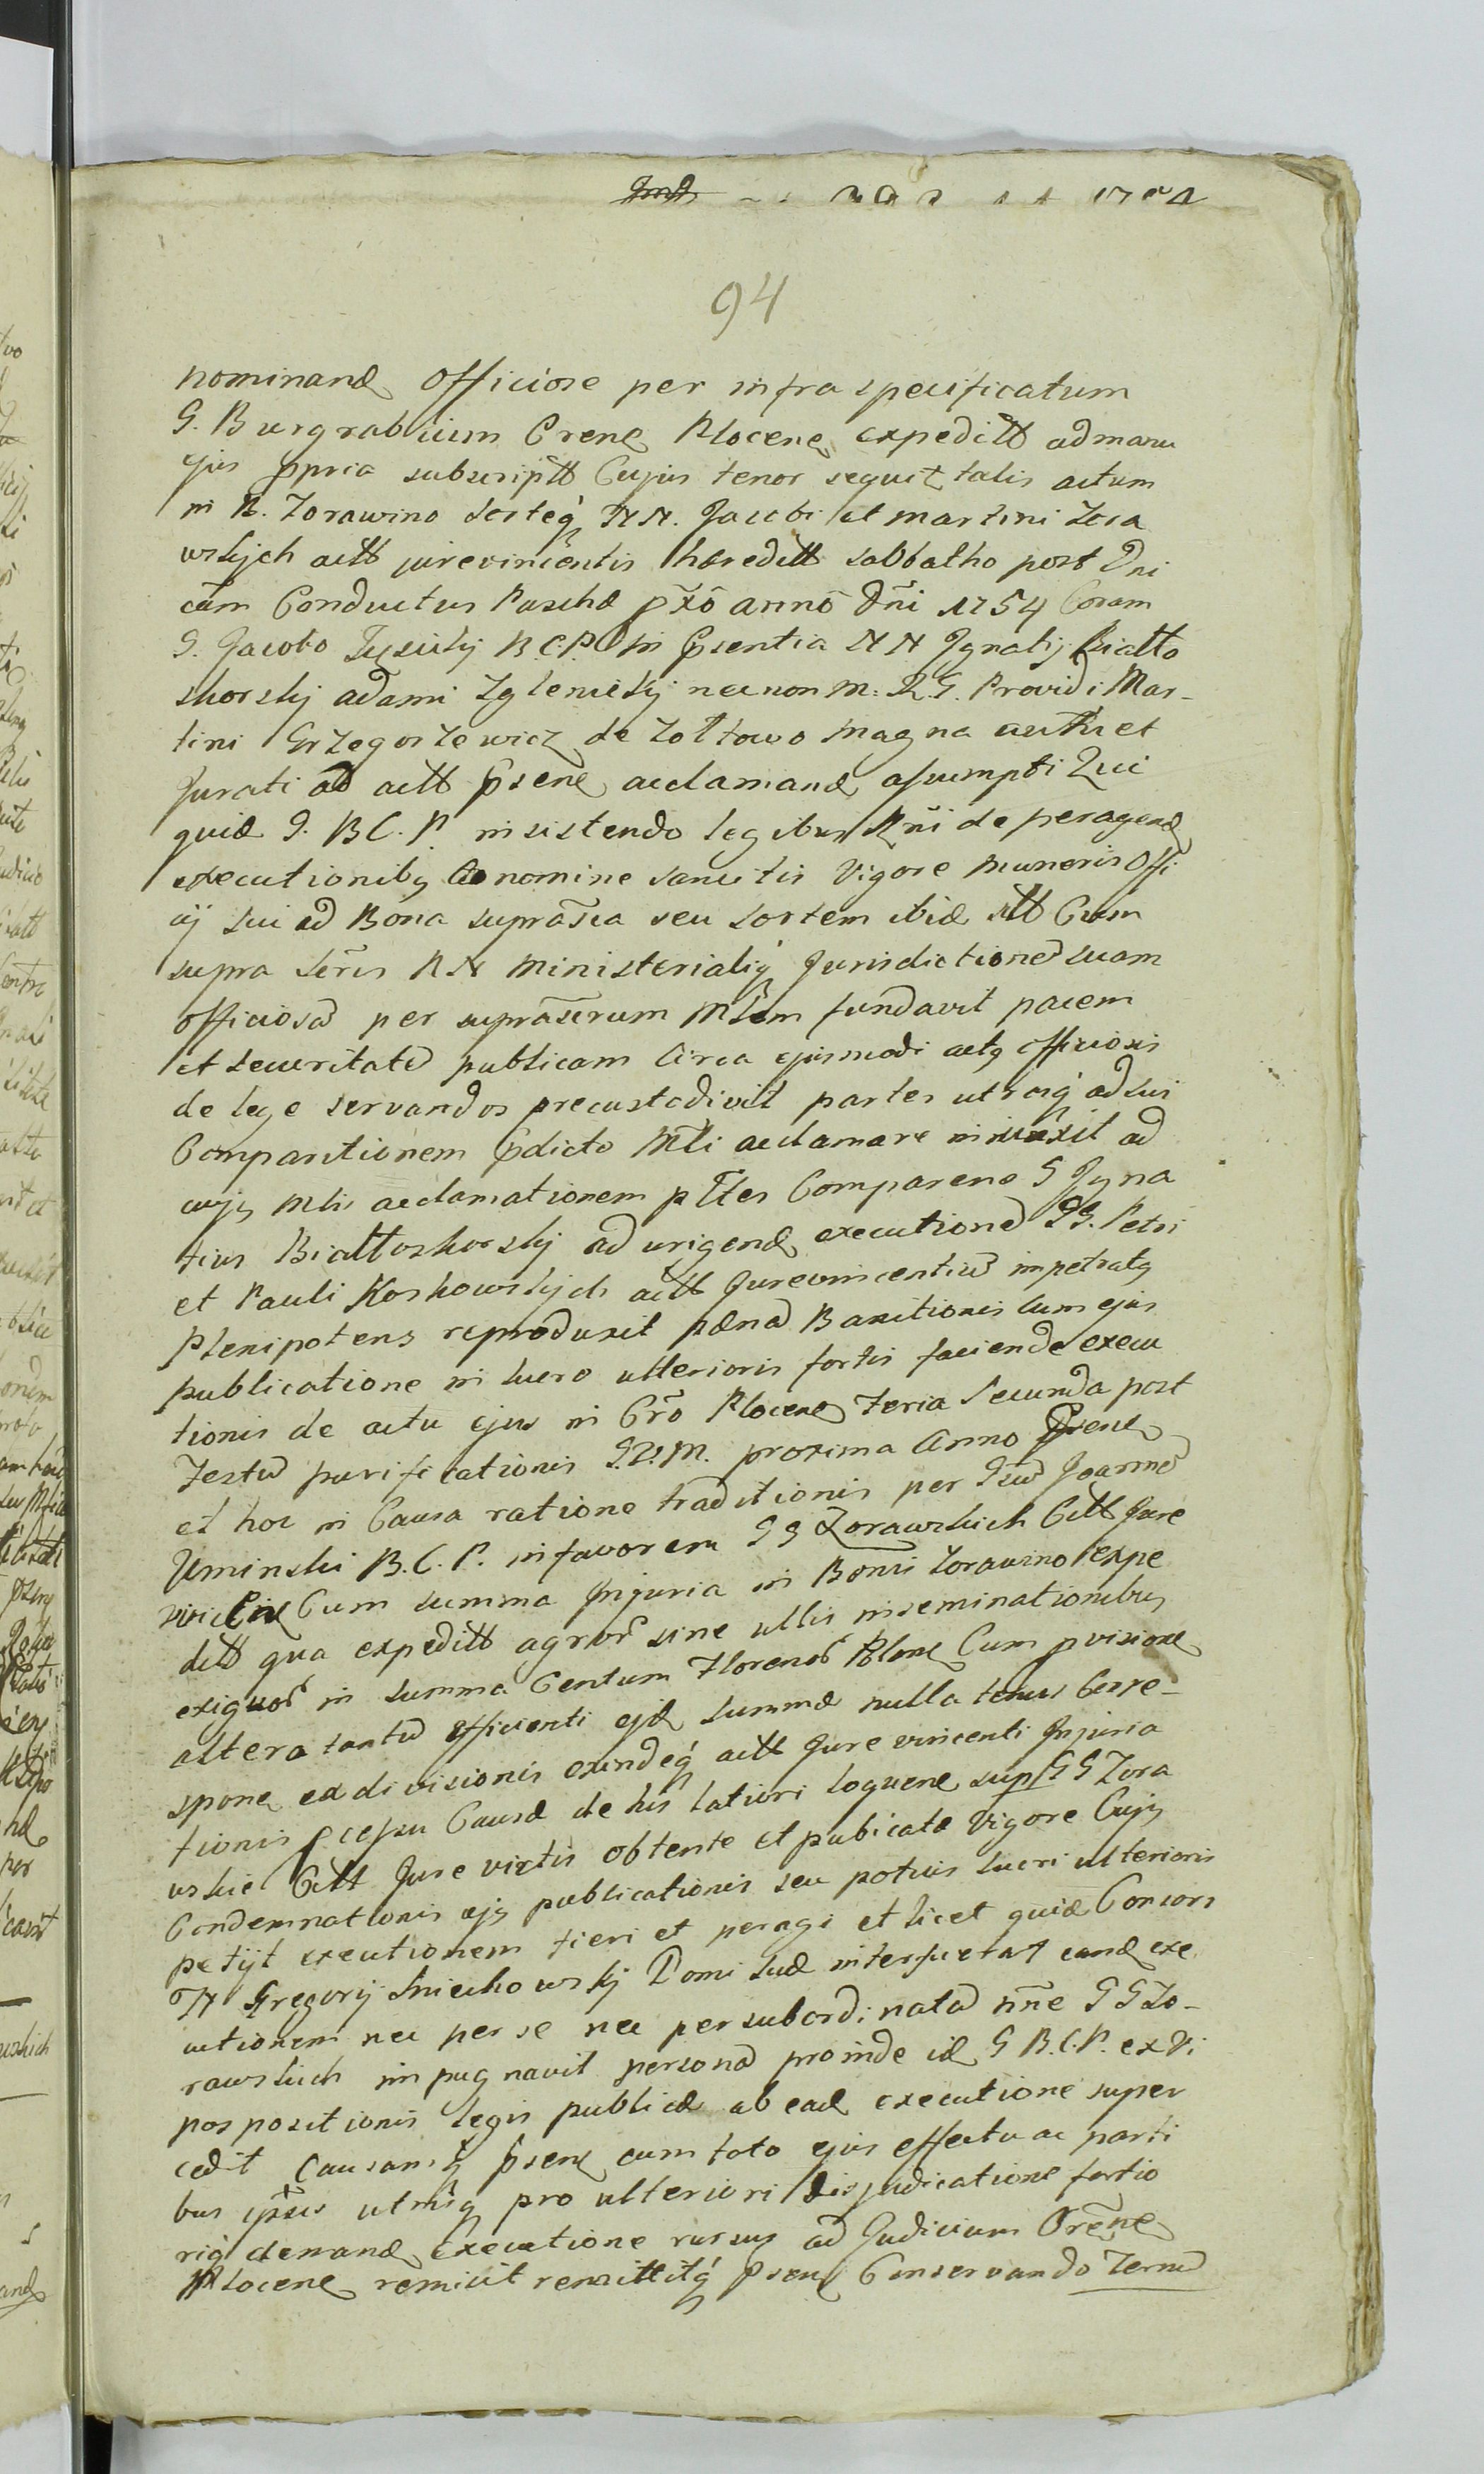 94
nominand officiose per infra specificatum
G. Burgrabium Crens Plocens expeditt ad manu
ejus ppria subscriptt Cujus tenor sequit talis actum
in B. Zorawino sorteq NN. Jacobi et Martini Zora
wskych actt jurevincentis hæreditt sabbatho post Dni
cam Conductus Paschæ pxo anno Dni 1754 Coram
G. Jacobo B.C.P. in psentia NN Ignatij Biatto
skorskj adami Zglenickj nec non M: R.G. Providi Mar-
tini Grzegorzewicz de Zottowo magna auth et
Jurati ad actt psens acclamand assumpti Qui
quid G. B C. P. insistendo legibus Rni de peragend
executionibq eo nomine sancitis Vigore muneris Offi
cij sui ad Bona suprasca seu sortem ibid sitt Cum
supra scris NN ministerialiq Jurisdictione suam
officiosa per suprascrum Mlem fundavit pacem
et securitate publicam Circa ejusmodi actq officiosis
de lege servandos precustodivit partes utrasq ad sui
Comparitionem pdicto Mli acclamare injunxit ad
cujq Mlis acclamationem ptes Comparens G Igna
tius Biattoskorskj ad urigend executione GG. Petri
et Pauli Koskowskych actt Jurevincentiu impetratq
Plenipotens reproduxit pæna Banitionis cum ejus
publicatione in lucro ulterioris fortis faciendæ execu
tionis de actu ejus in Cro Plocens Feria Secunda post
Festu purificationis B.V.M. proxima Anno psene
et hoc in Causa ratione traditionis per Gsu Joanne
Uminski B.C.P. in favorem GG Zorawskich Citt Jure
Cum summa Injuria in Bonis Zorawino expe
ditt qua expeditt agror sine ullis inseminationibus
exiguor in summa Centum Florenor Polone Cum pvisione
altera tantu efficienti ejd summæ nulla tenus Corre-
spone ex divisionis exindeq actt Jure vincenti Injuria
tionis pcessu Causæ de his latiori loquene sup GG Zora
wskie Citt Jure victis obtente et pubicatæ Vigore Cujq
Condemnationis ejq publicationis seu potius lucri ulterioris
petijt executionem fieri et peragi et licet quid Consors
N Gregorij Sniechowskj Domi suæ interfuerat eand exe
cutionem nec per se nec per subordinata nne GG Zo-
rawskich impugnavit persona proinde id G B.C.P. ex Vi
pospositionis legis publicæ ab ead executione super
cedit Causamq psene cum toto ejus effectu ac parti
bus ipsis utrisq pro ulteriori disjudicatione fortio
riq demand Executione rursus ad Judicium Crene
Plocene remisit remittitq psens Conservando Termu